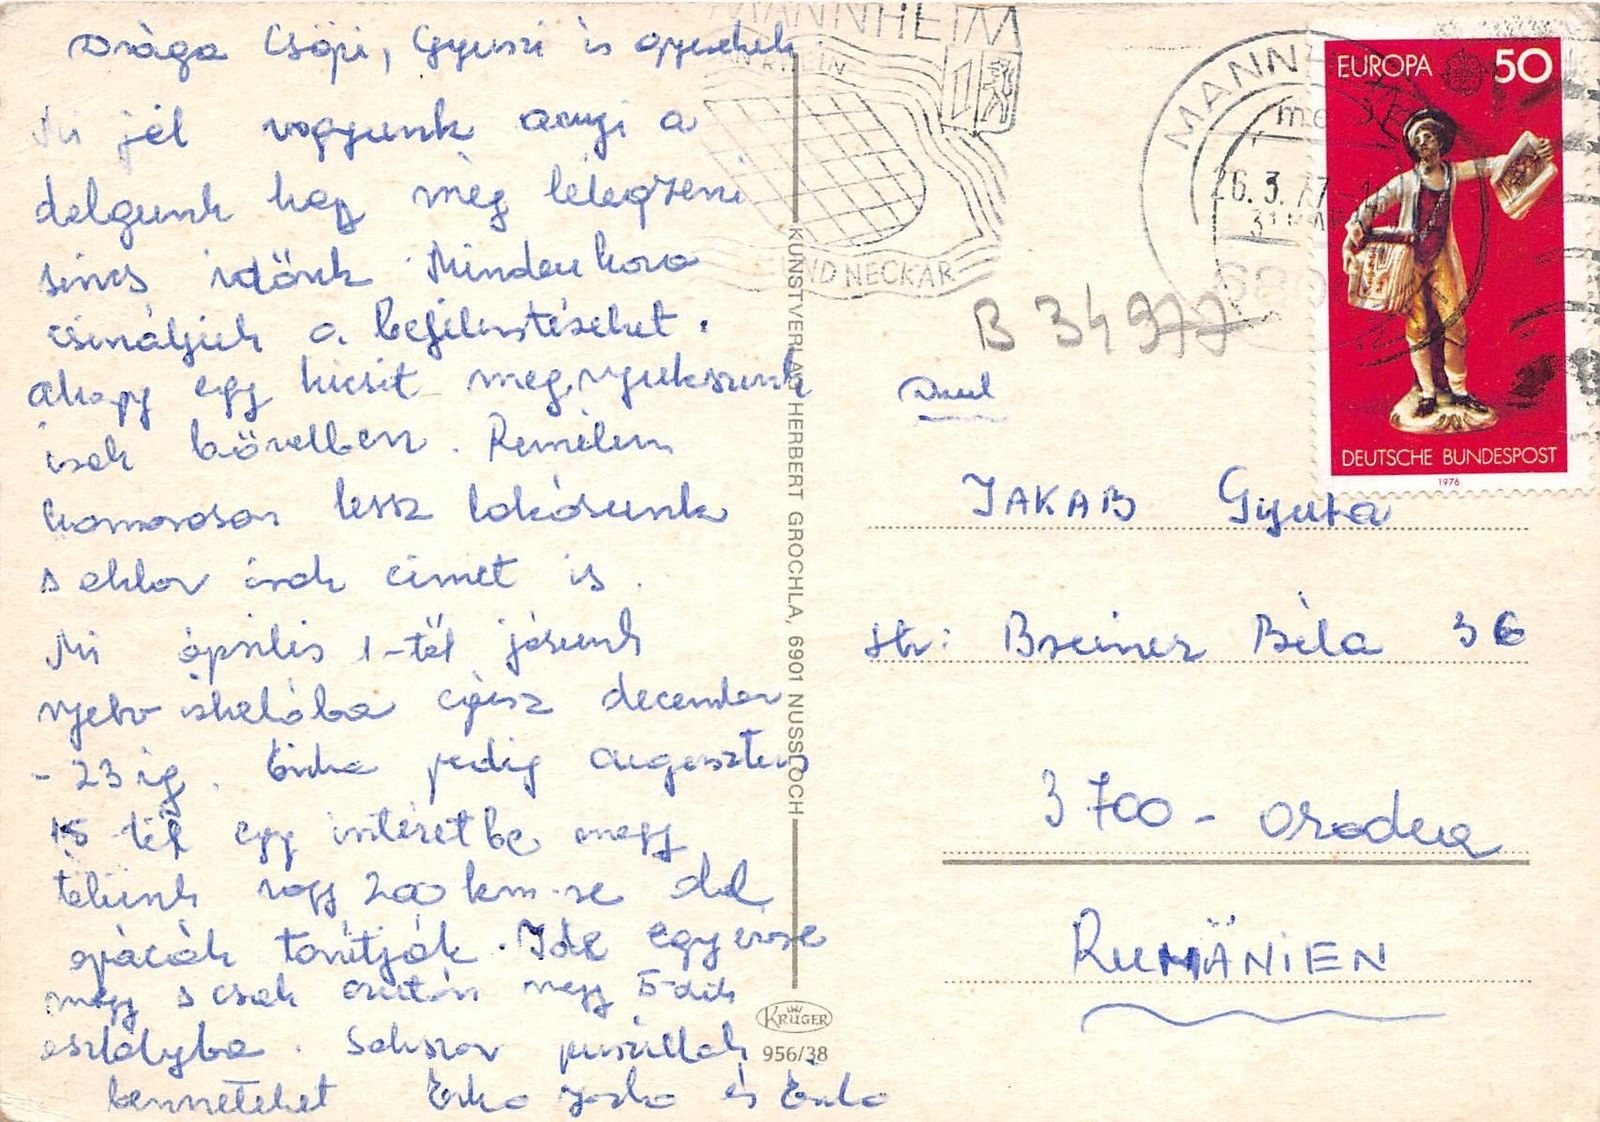 Drága Csöpi, Gyuszi és gyerekek
Mi jól vagyunk anyi a
dolgunk hogy még lélegzeni
sincs időnk. Minden hova
csináljuk a befilentéseket.
ahogy egy kicsit meg nyukszunk
irok bővebben. Remélem
hamarosan lessz lakásunk
s akkor irok cimet is.
Mi április 1-től járunk
nyelv iskolába egész december
-23 ig. Erika pedig augusztus
15 től egy intézetbe megy
tőlünk vagy 200 km-re ahol
apácák tanitják. Ide egy évre
megy s csak azután megy 5-dik
osztályba. Sokszor puszillak
bennetehet Erka Jocka és Erika
MANNHEIM
AN RHEIN
UND NECKAR
MANNH
26.3.77
EUROPA 50
DEUTSCHE BUNDESPOST
1976
B 34977
JAKAB Gyula
str: Breiner Béla 36
3700 - Oradea
RUMÄNIEN
KUNSTVERLAG HERBERT GROCHLA, 6901 NUSSLOCH
KRÜGER
956/38